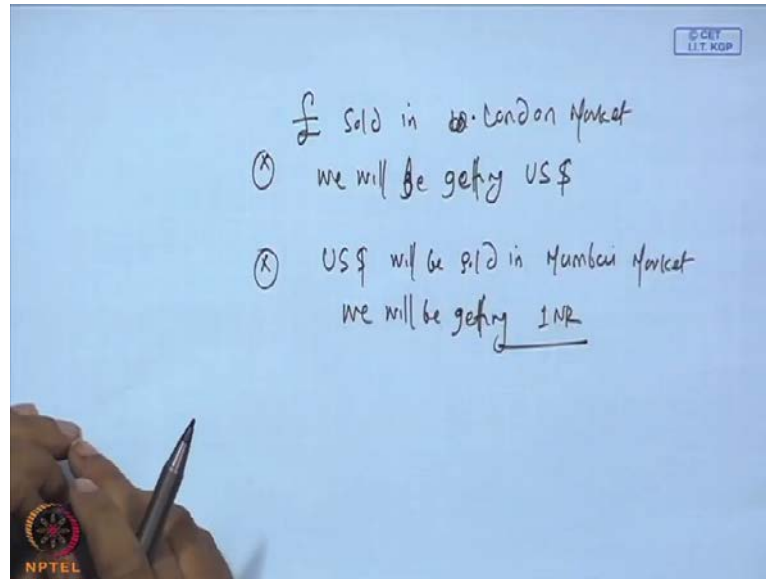 © CET
I.I.T. KGP
£ sold in London Market
we will be getting US$
US$ will be sold in Mumbai Market
we will be getting INR
NPTEL